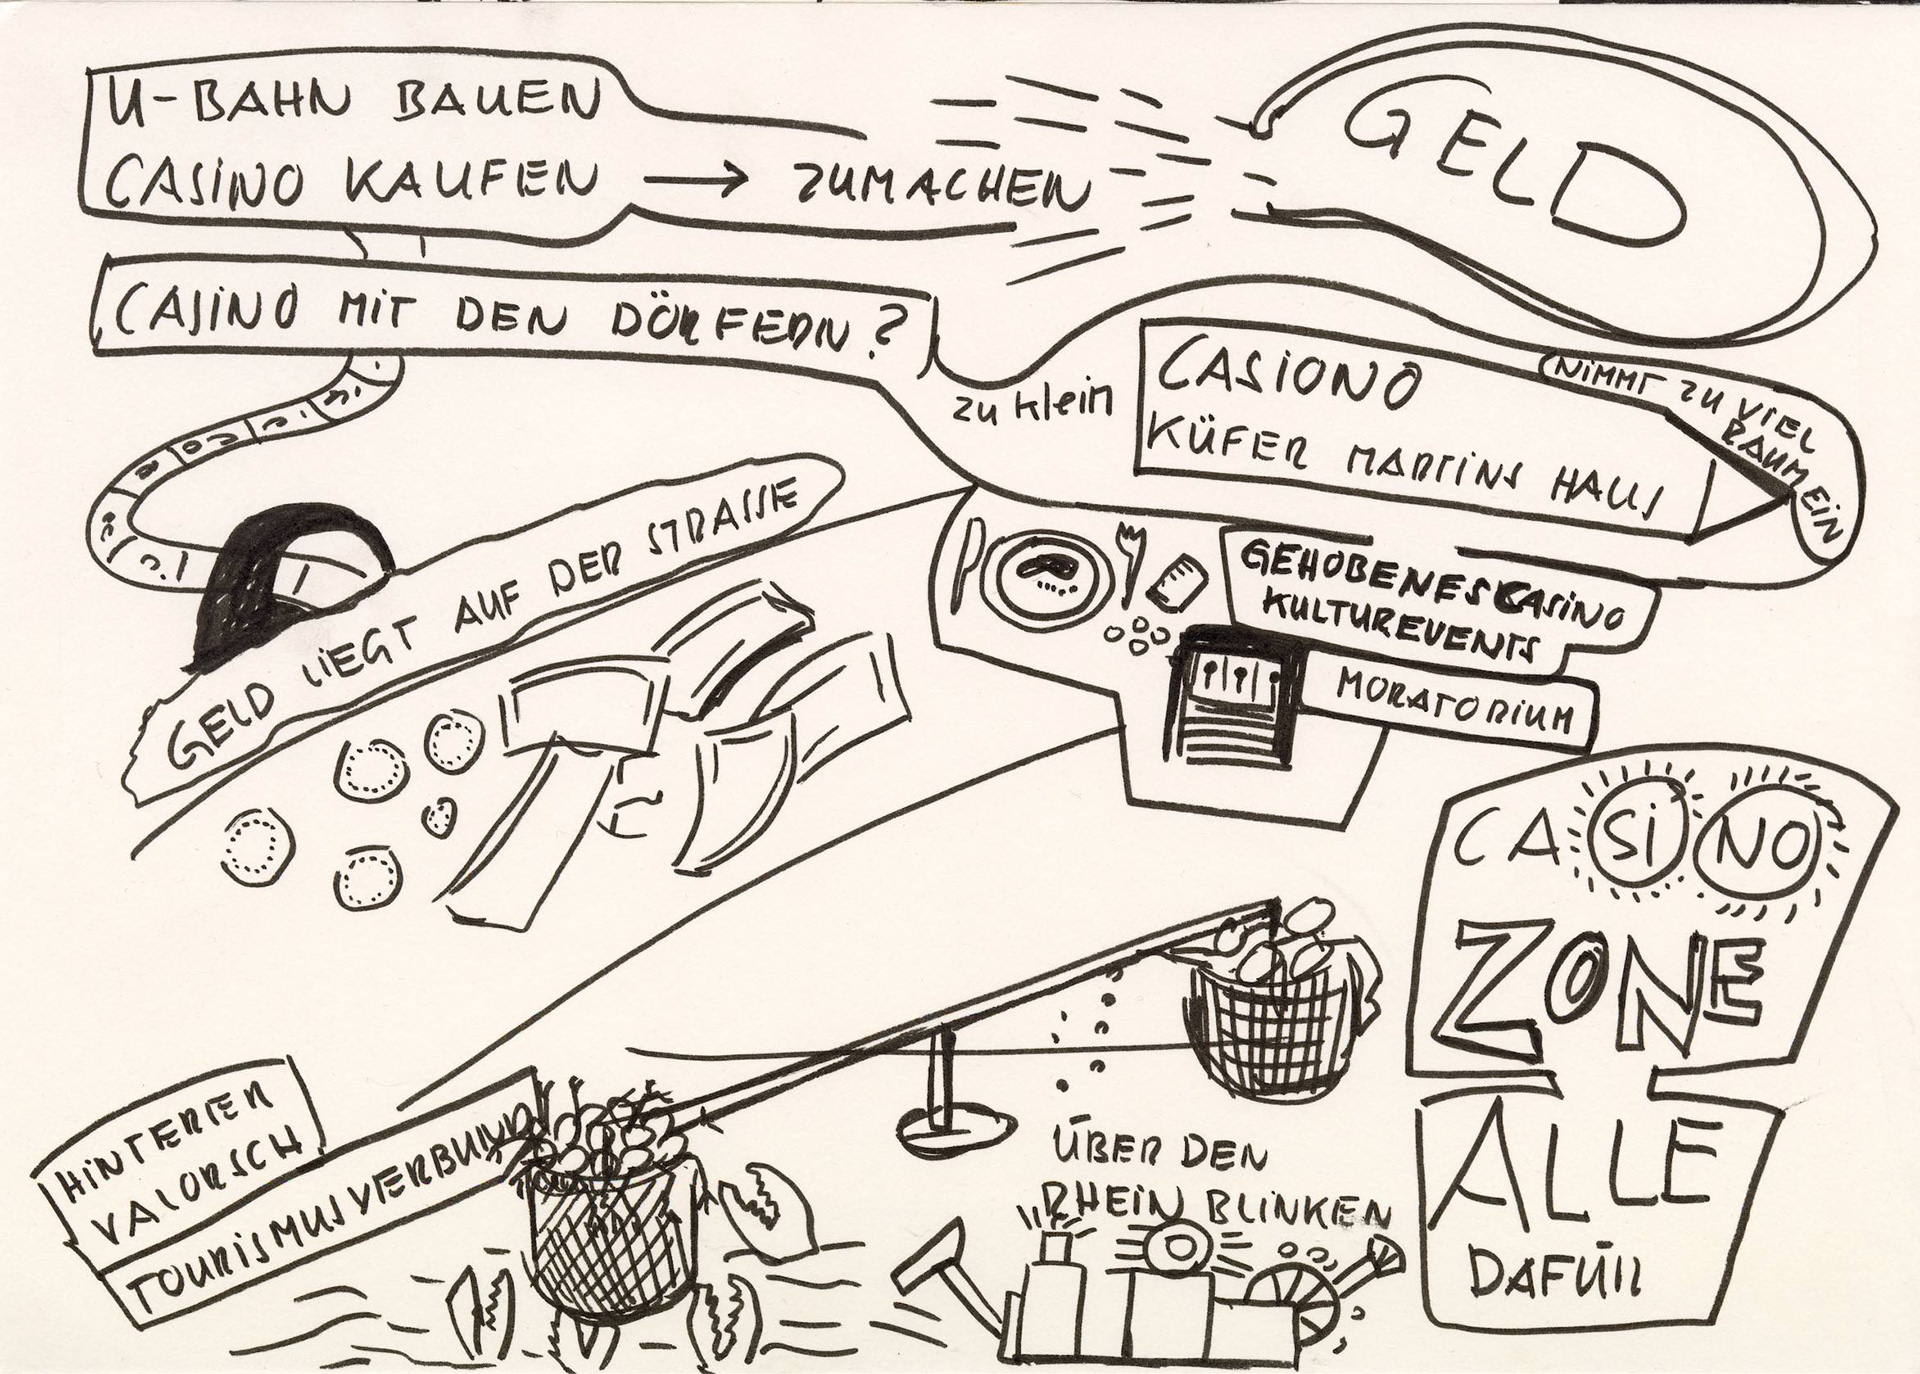 U-BAHN BAUEN
CASINO KAUFEN → ZUMACHEN
GELD
CASINO MIT DEN DÖRFERN?
zu klein
CASIONO
KÜFER MARTINS HAUS
(NIMMT ZU VIEL
RAUM EIN
GELD LIEGT AUF DER STRASSE
GEHOBENES CASINO
KULTUREVENTS
MORATORIUM
CASINO
ZONE
ALLE
DAFÜR
HINTERER
VALORSCH
TOURISMUSVERBUND
ÜBER DEN
RHEIN BLINKEN